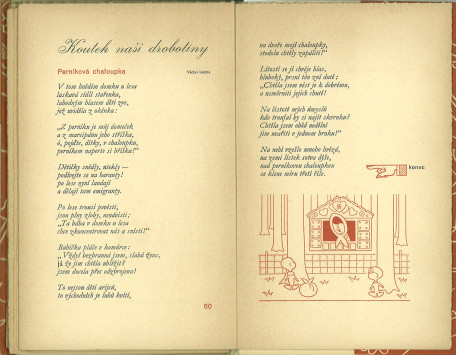 Koutek naší drobotiny
Perníková chaloupka
Václav Lacina
V tom hnědém domku u lesa
laskavá sídlí stařenka,
labodným hlasem děti zve,
jež uviděla z okénka:
„Z perníku je můj domeček
a z marcipánu jeho stříška,
ó, pojďte, dítky, v chaloupku,
perníkem naperte si bříška!“
Dětičky snědly, utekly —
podívejte se na haranty!
po lese nyní landají
a dělají tam emigranty.
Po lese trousí pověsti,
jsou plny zloby, nenávisti:
„Ta bába v domku u lesa
chce zkoncentrovat nás a snísti!“
Babička pláče v komůrce:
„Vždyť bezbranná jsem, slabá žena,
já že jim chtěla ublížit?
jsem docela přec odzbrojena!
To nejsou děti arijců,
to východních je lůhů kvítí,
60
na dvoře mojí chaloupky,
stodolu chtěly zapáliti!“
Lítostí se jí chvěje hlas,
hluboký, prsní tón zní dutě:
„Chtěla jsem vést je k dobrému,
a usměrniti jejich chutě!
Na čistotě mých úmyslů
kdo troufal by si najít skvrnku?
Chtěla jsem oběd nedělní
jim uvařiti v jednom hrnku!“
Na nebi vzešlo mnoho hvězd,
na zemi lístek sotva dýše,
nad perníkovou chaloupkou
se klene míru třetí říše.
konec